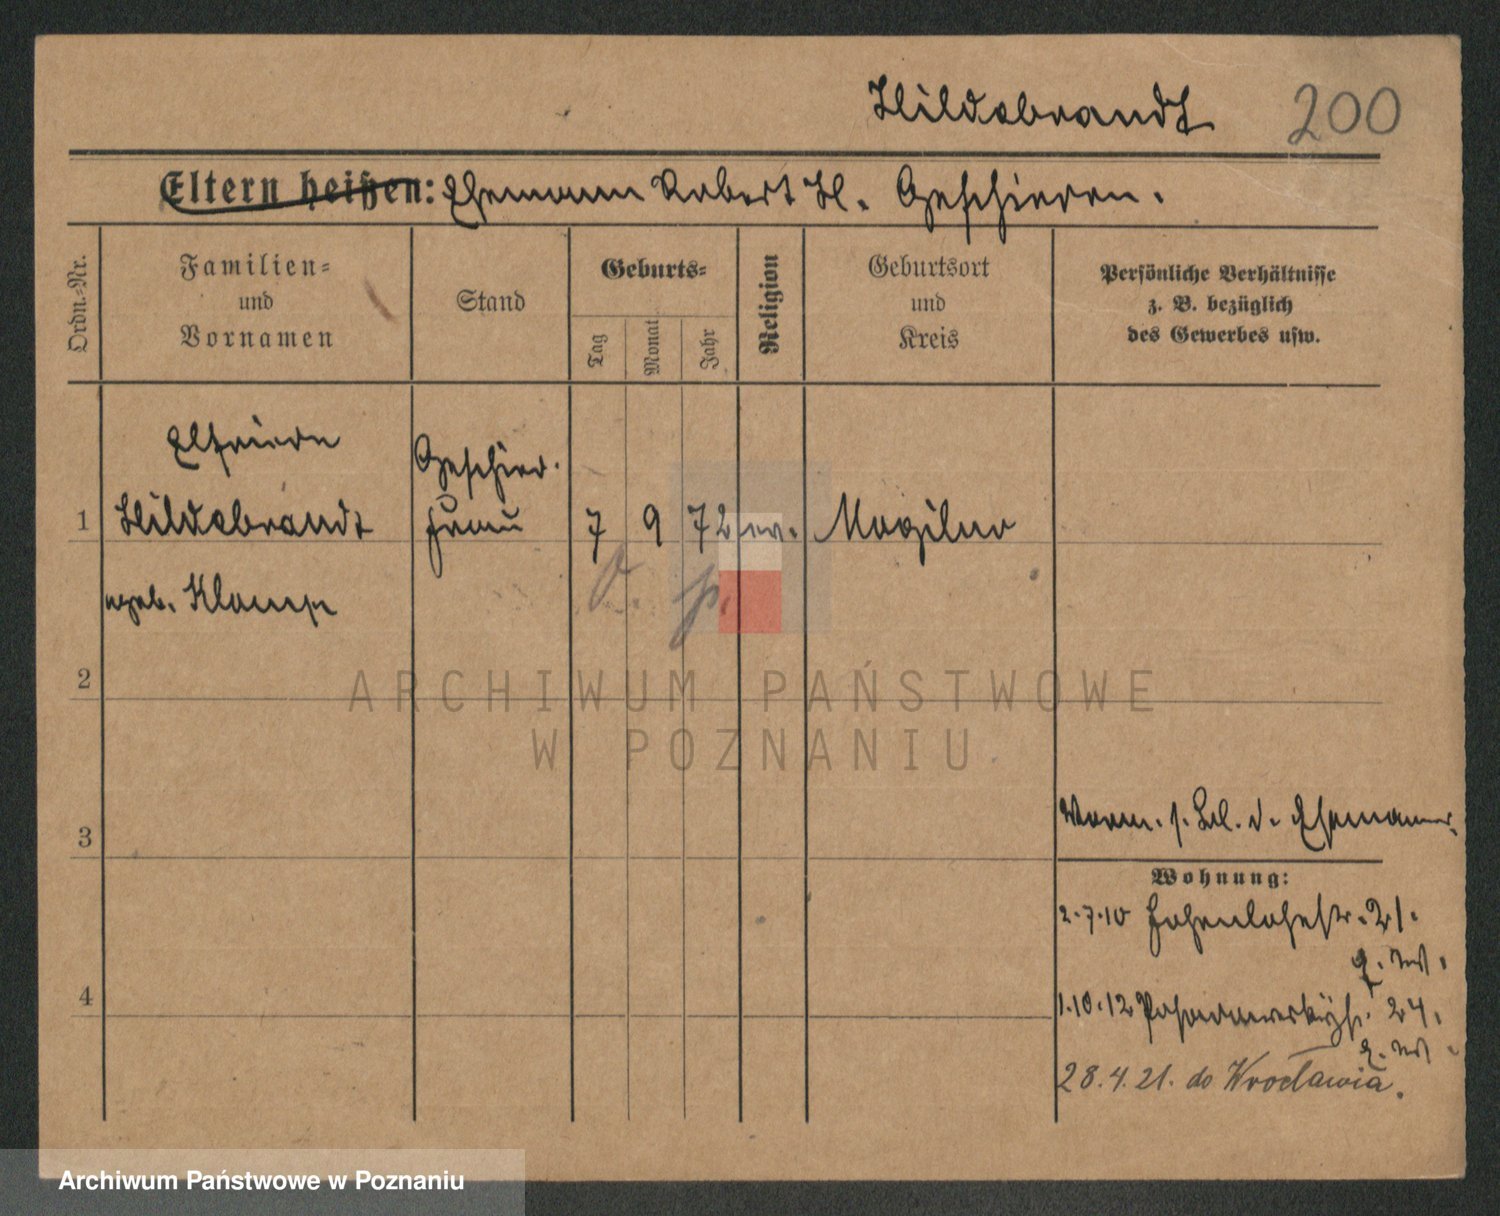 Hildebrandt 200
Eltern heißen: Ehemann Robert H. Geschieden.
Ordn.-Nr.
Familien-
und
Vornamen
Stand
Geburts-
Tag
Monat
Jahr
Religion
Geburtsort
und
Kreis
Persönliche Verhältnisse
z. B. bezüglich
des Gewerbes usw.
Elfriede
Geschied.
1 Hildebrandt Frau 7 9 72 ev. Mogilno
geb. Klamp
2
ARCHIWUM PAŃSTWOWE
W POZNANIU
3
Vorm. s. Bl. d. Ehemannes.
Wohnung:
2.7.10 Hohenlohestr. 21.
4
1.10.12 24.
28.4.21. do Wrocławia.
Archiwum Państwowe w Poznaniu